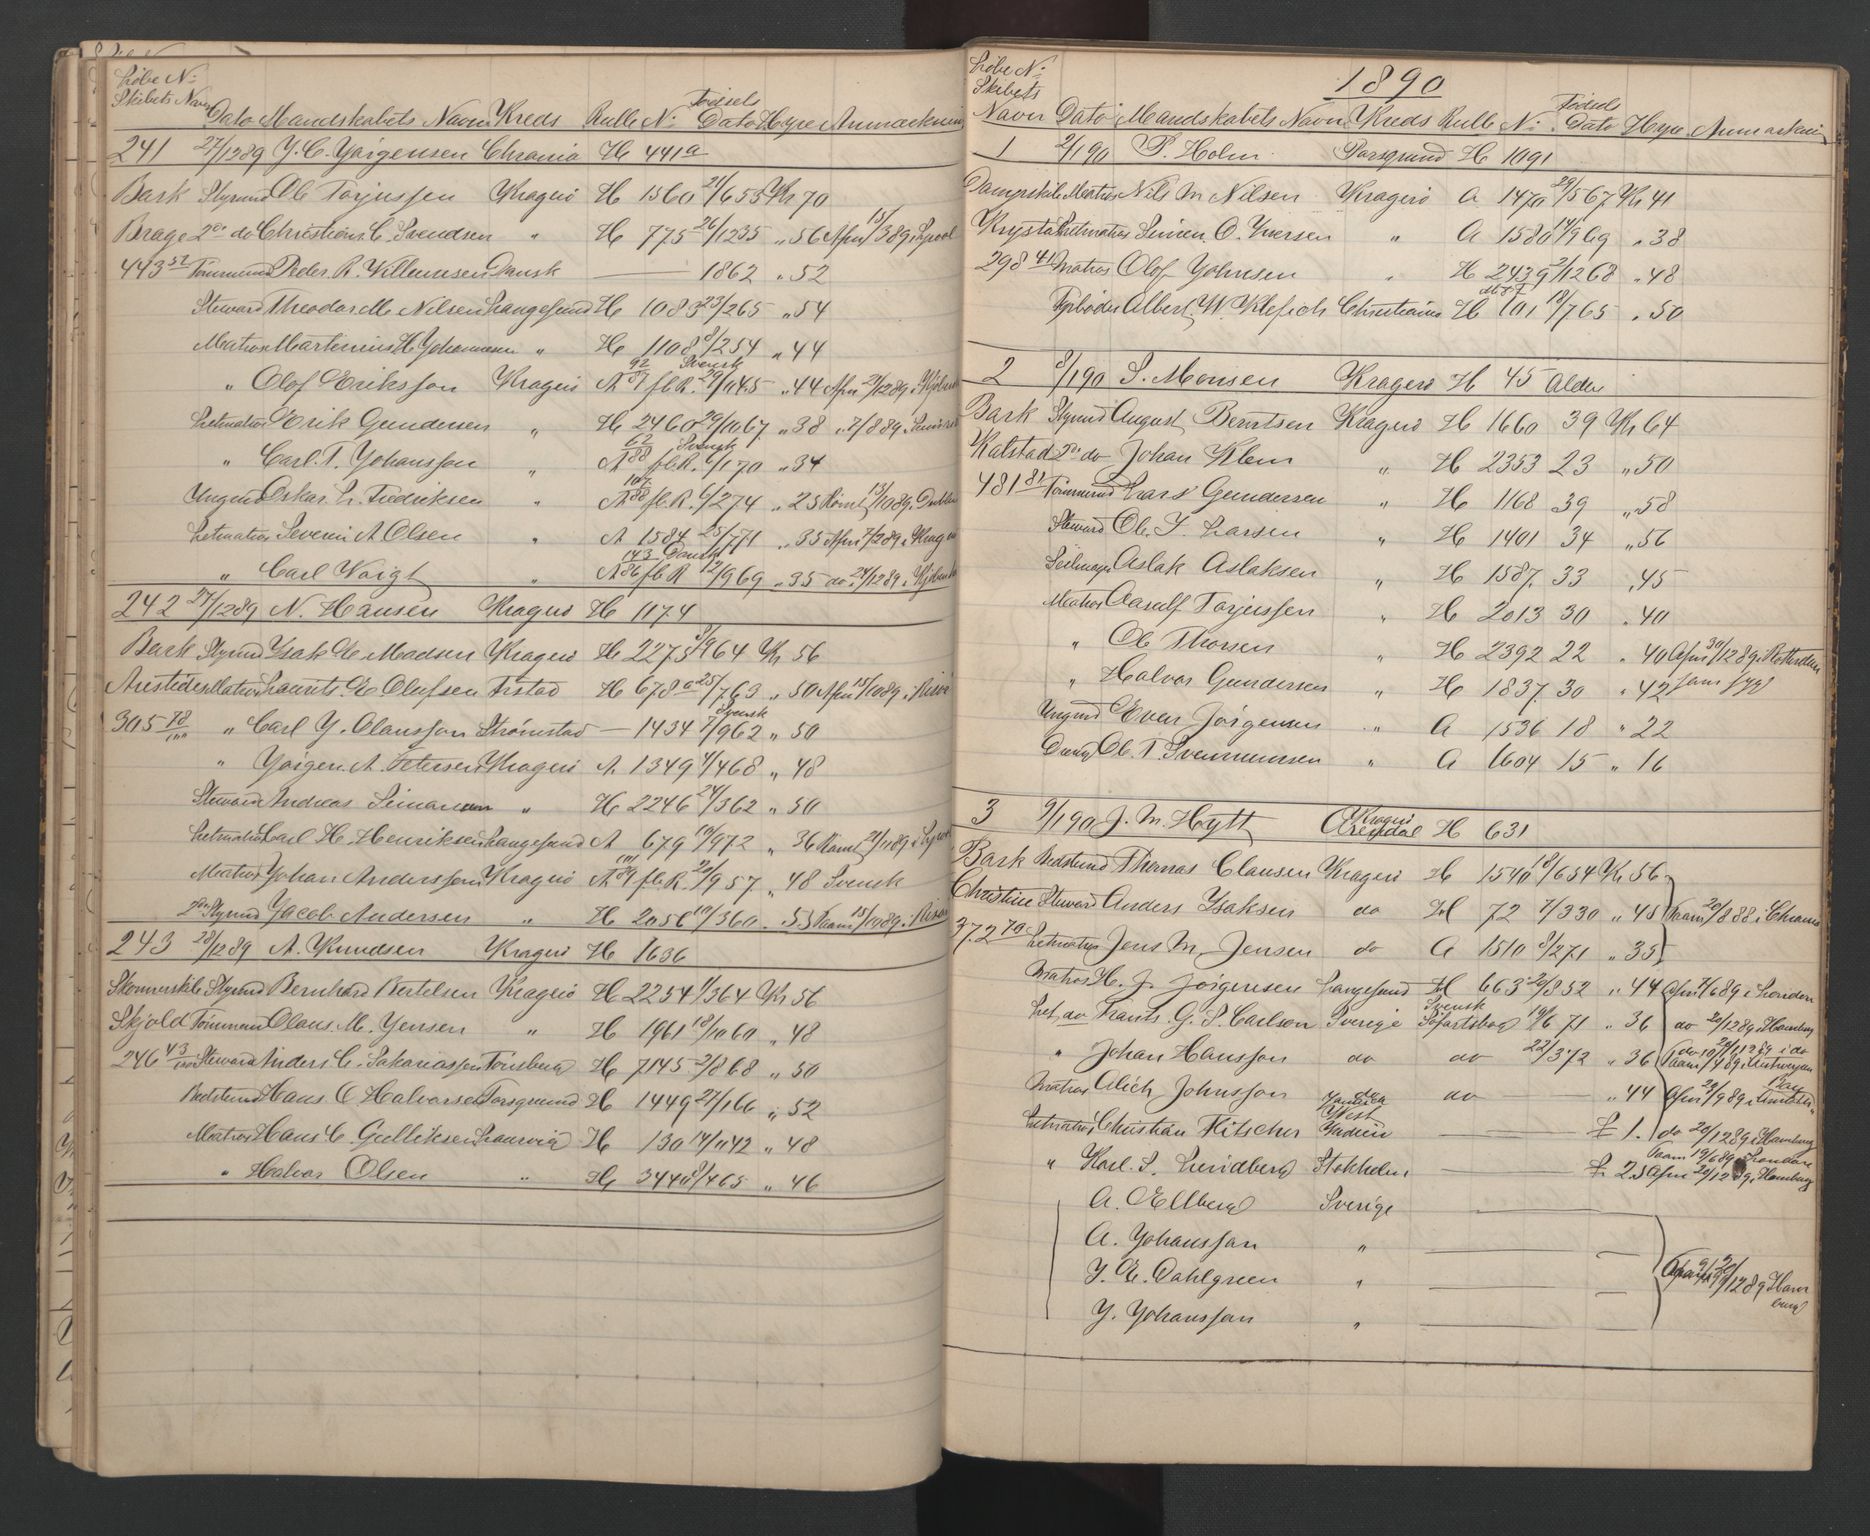 Löbe No
Skibets Navn Dato Mandskabets Navn Kreds Rulle No Födsels Dato Hyre Anmærkning
241 27/12 89 J. C. Jörgensen Chrania H 441a
Bark Styrmd Ole Torjussen Kragerö H 1560 21/6 55 Kr 70
Brage 2den do Christians C. Svendsen " H 775 26/12 35 " 56 Afm 15/3 89 i Lpool
443 52 Tömmermd Peder R. Willumsen Dansk — 1862 " 52
Steward Theodor M. Nilsen Langesund H 1083 23/2 65 " 54
Matros Martinius H. Johannesen " H 1108 8/2 54 " 44
" Olof Eriksson Kragerö A 92/89 fl.R. Svensk 29/11 45 " 44 Afm 21/12 89 i
Letmatros Erik Gundersen " H 2460 29/10 67 " 38 " 7/8 89 i
" Carl. T. Johansson " A 62/88 fl.R. Svensk 6/1 70 " 34
Ungmd Oskar L. Fredriksen " A 107/88 fl.R. 6/2 74 " 25 Römt 13/10 89 i
Letmatros Severin A Olsen " A 1584 25/7 71 " 35 Afm 7/2 89 i Krag
" Carl Voigt " A 143/86 fl R Dansk 12/9 69 " 35 do 24/12 89 i
242 27/12 89 N. Hansen Kragerö H 1174
Bark Styrmd Isak E Madsen Kragerö H 2275 3/9 64 Kr 56
Aristides Matros Laurits. E Olufsen H 678a 25/7 63 " 50 Afm 15/10 89 i Risör
305 78 " Carl J. Olausson Strömstad — 1434 Svensk 7/9 62 " 50
" Jörgen A. Petersen Kragerö A 1349 4/4 68 " 48
Steward Andreas Simonsen " H 2246 24/3 62 " 50
Letmatros Carl H. Henriksen Langesund A 679 19/9 72 " 36 Römt 21/11 89 i Lpool
Matros Johan Andersson Kragerö A fl.R. 20/9 57 " 48 Svensk
2den Styrmd Jacob Andersen " H 2056 19/3 60 " 53 Paam 15/10 89 i Risör
243 28/12 89 A. Knudsen Kragerö H 1636
Skonnertskib Styrmd Bernhard Bertelsen Kragerö H 2254 4/3 64 Kr 56
Skjold Tömmermd Olaus. M. Jensen " H 1961 18/10 60 " 48
246 43 Steward Anders C. Sakariassen Tönsberg H 7145 2/8 68 " 50
Bedstmd Hans O. Halvorsen Porsgrund H 1449 27/1 66 " 52
Matros Hans C. Gulliksen Laurvig H 130 14/11 42 " 48
" Halvor Olsen " H 3440 8/4 65 " 46
1890
Löbe No
Skibets Navn Dato Mandskabets Navn Kreds Rulle No Födsels Dato Hyre Anmærkning
1 2/1 90 P. Holm Porsgrund H 1091
Dampskib Matros Nils M Nilsen Kragerö A 1470 29/5 67 Kr 41
Krystal Letmatros Simen O. Iversen " A 1580 14/9 69 " 38
298 41 Matros Olof Johnsen " H 2439 2/12 68 " 48
Fyrböder Albert W. Klefich Christiania H 101 18/7 65 " 50
2 8/1 90 S. Monsen Kragerö H 45 Alder
Bark Styrmd August Berntsen Kragerö H 1660 39 Kr 64
Kalstad 2den do Johan Klem " H 2353 23 " 50
481 81 Tömmermd Lars Gundersen " H 1168 39 " 58
Steward Ole. I. Larsen " H 1401 34 " 56
Seilmager Aslak Aslaksen " H 1587. 33 " 45
Matros Aasulf Torjussen " H 2013 30 " 40
" Ole Thorsen " H 2392 22 " 40 Afm 30/12 89 i Rotterdam
" Halvor Gundersen " H 1837. 30 " 42 som syg
Ungmd Even Jörgensen " A 1536 18 " 22
Dreng Ole. T. Svennumsen " A 1604 15 " 16
3 9/1 90 J. M. Hytt Kragerö Arendal H 631
Bark Bedstmd Thomas Clausen Kragerö H 1540 18/6 54 Kr 56
Christine Steward Anders Isaksen do H 72 7/3 30 " 45 Paam 20/8 88 i Chrania
372 70 Letmatros Jens M. Jensen do A 1510 8/2 71 " 35
Matros H. J. Jörgensen Langesund H 663 2/8 52 " 44 Afm 7/6 89 i London
Let do Frants. G. P. Carlson Sverige Svensk Söfartsbog 19/6 71 " 36 do 20/12 89 i Hamburg
" Johan Hansson do do 22/3 72 " 36 do 20/12 89 i do Paam 10/4 89 i Antwerpen
Matros Alich Johnsson do — " 44 Afm 29/9 89 i
Letmatros Christian Flitscher West Indien — £ 1. do 20/12 89 i Hamburg
" Karl. S. Lundberg Stokholm — £ 2.5 Paam 19/6 89 i London Afm 20/12 89 i Hamburg
A. Ellberg Sverige —
A. Johansson " —
J. E. Dahlgreen " — 12 89 i Hamburg
J. Johansson " —